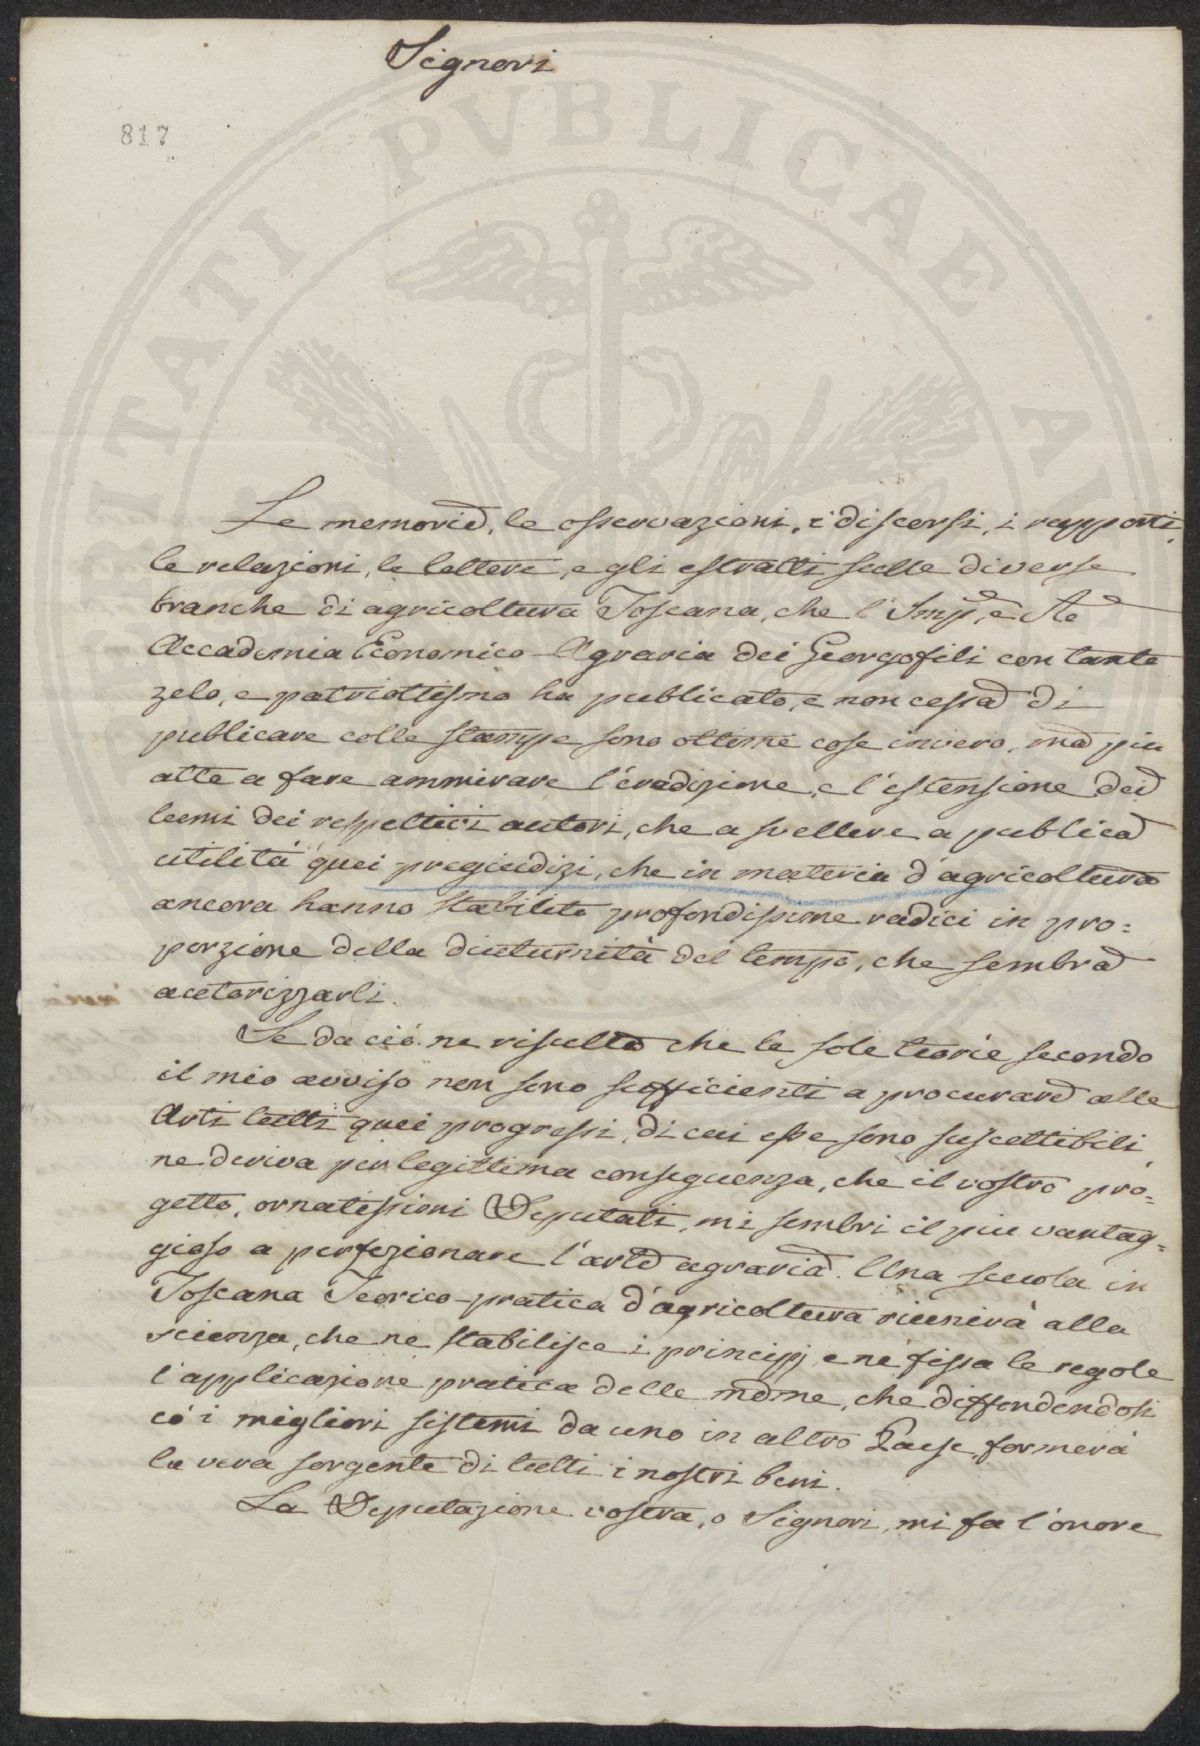 Signori
817
PVBLICAE
Le memorie, le osservazioni, i discorsi, i rapporti,
le relazioni, le lettere, e gli estratti sulle diverse
branche di agricoltura Toscana, che l'Imp.e e Re.
Accademia Economico-Agraria dei Georgofili con tanto
zelo, e patriottismo ha publicato, e non cessa di
publicare colle stampe sono ottime cose invero, ma più
atte a fare ammirare l'erudizione, e l'estensione dei
lumi dei respettivi autori, che a svellere a publica
utilità quei pregiudizi, che in materia d'agricoltura
ancora hanno stabilite profondissime radici in pro=
porzione della diuturnità del tempo, che sembra
autorizzarli.
Se da ciò ne risulta che le sole teorie secondo
il mio avviso non sono sufficienti a procurare alle
Arti tutti quei progressi, di cui esse sono suscettibili,
ne deriva per legittima conseguenza, che il vostro pro=
getto, ornatissimi Deputati, mi sembri il piu vantag=
gioso a perfezionare l'arte agraria. Una scuola in
Toscana Teorico-pratica d'agricoltura riunirà alla
scienza, che ne stabilisce i principj, e ne fissa le regole
l'applicazione pratica delle mdme, che diffondendosi
co' i migliori sistemi da uno in altro Paese formerà
la vera sorgente di tutti i nostri beni.
La Deputazione vostra, o Signori, mi fa l'onore